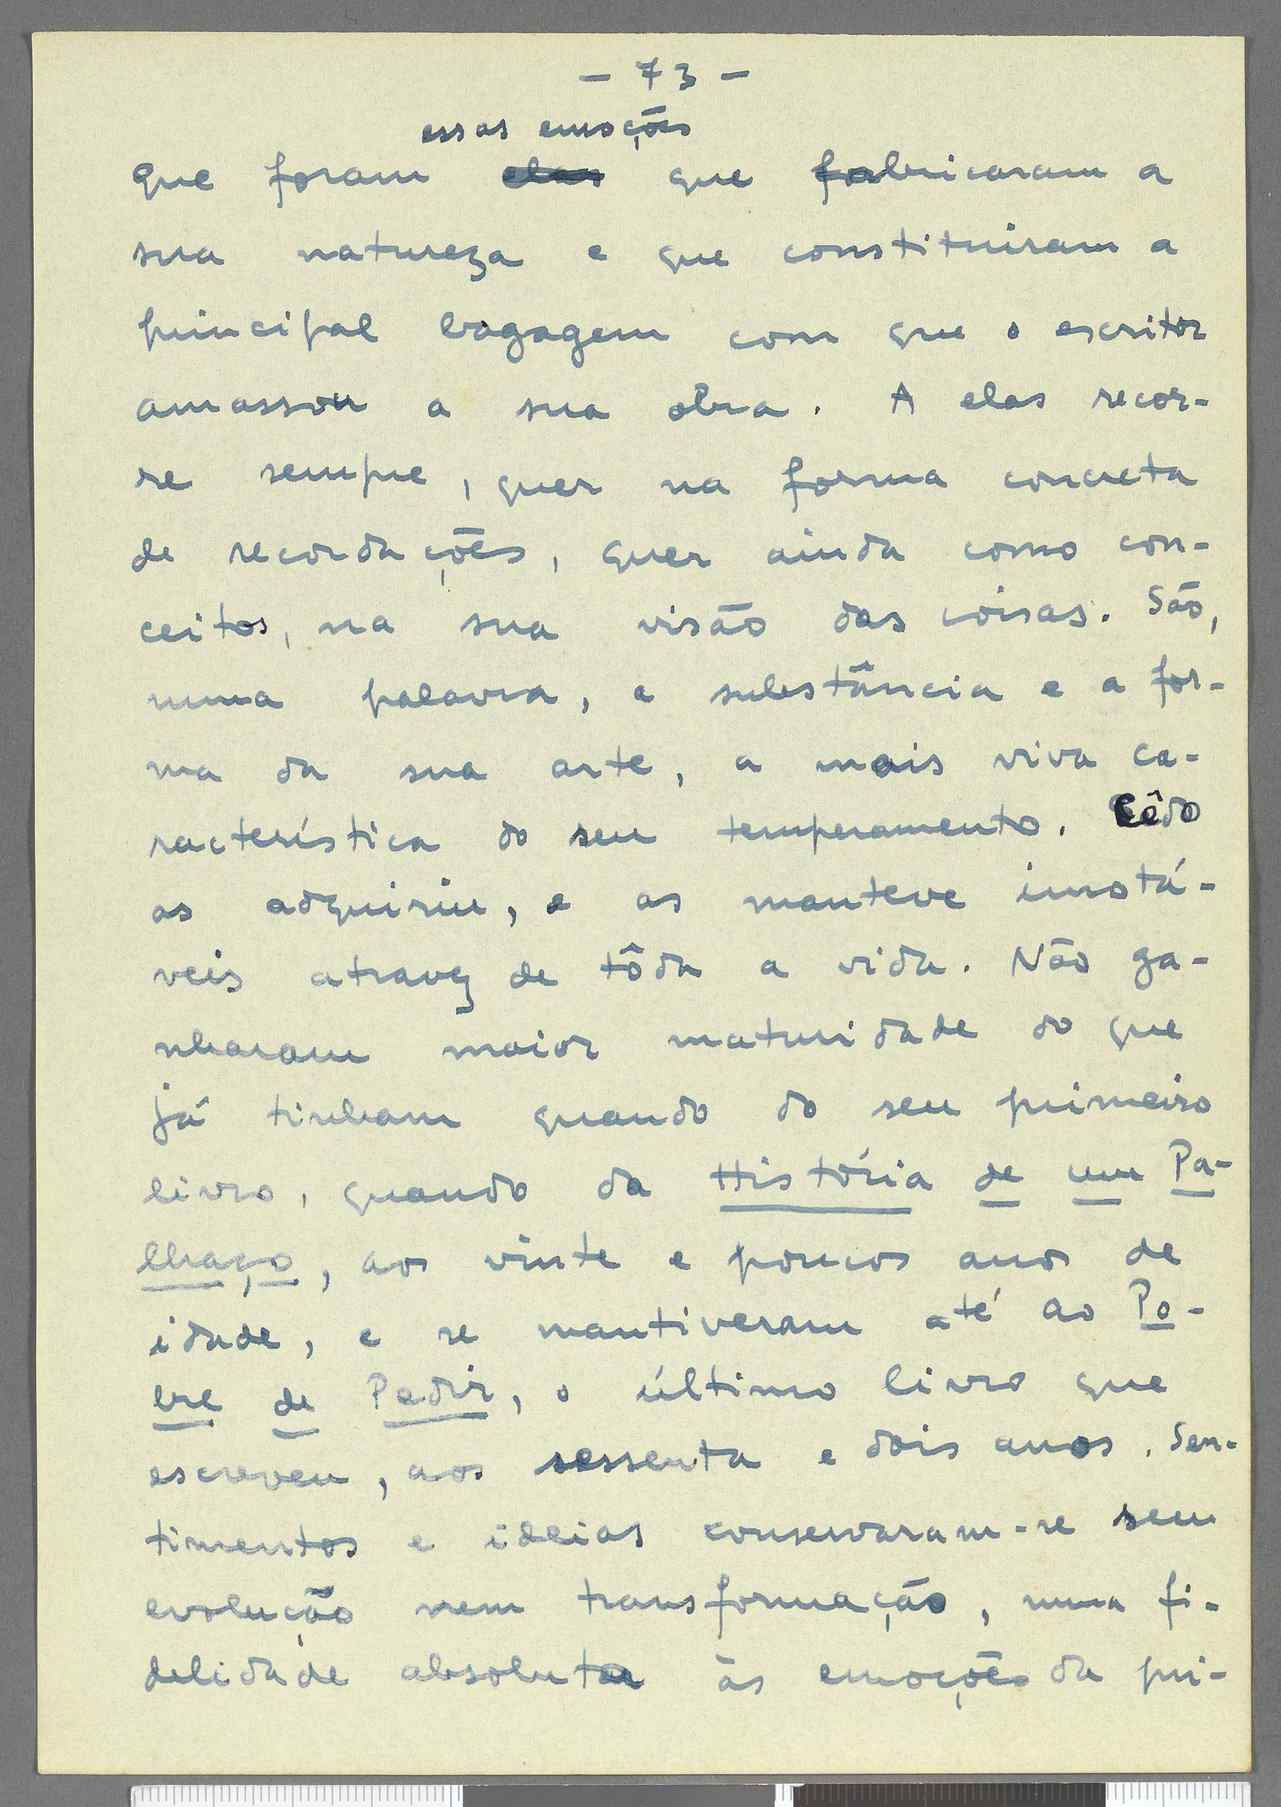 - 73 -
essas emoções
que foram elas que fabricaram a
sua natureza e que constituiram a
principal bagagem com que o escritor
amassou a sua obra. A elas recor-
re sempre, quer na forma concreta
de recordações, quer ainda como con-
ceitos, na sua visão das coisas. São,
numa palavra, a substância e a for-
ma da sua arte, a mais viva ca-
racterística do seu temperamento. Cêdo
as adquiriu, e as manteve imotá-
veis atravez de tôda a vida. Não ga-
nharam maior maturidade do que
já tinham quando do seu primeiro
livro, quando da História de um Pa-
lhaço, aos vinte e poucos anos de
idade, e se mantiveram até ao Po-
bre de Pedir, o último livro que
escreveu, aos sessenta e dois anos. Sen-
timentos e ideias conservaram-se sem
evolução nem transformação, numa fi-
delidade absoluta às emoções da pri-